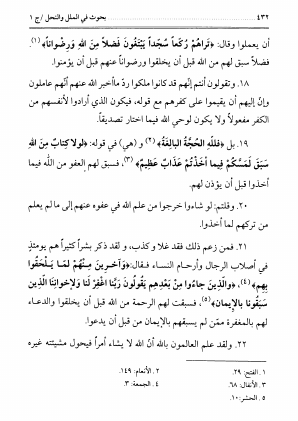 ٤٣٢ بحوث في الملل والنحل /ج ١
أن يعملوا وقال: ﴿تَراهُمْ رُكَّعاً سُجَّداً يَبْتَغُونَ فَضلاً مِنَ اللهِ وَرِضْواناً﴾ (١).
فضلاً سبق لهم من الله قبل أن يخلقوا ورضواناً عنهم قبل أن يؤمنوا.
١٨. وتقولون أنتم إنّهم قد كانوا ملكوا ردّ ما أخبر الله عنهم أنّهم عاملون
وإنّ إليهم أن يقيموا على كفرهم مع قوله، فيكون الذي أرادوا لأنفسهم من
الكفر مفعولاً ولا يكون لوحي الله فيما اختار تصديقاً.
١٩. بل ﴿فَللّهِ الحُجَّةُ البالِغَة﴾ (٢) و (هي) في قوله: ﴿لَولا كِتابٌ مِنَ اللهِ
سَبَقَ لَمَسَّكُمْ فِيما أَخَذْتُمْ عَذَابٌ عَظِيمٌ﴾ (٣)، فسبق لهم العفو من الله فيما
أخذوا قبل أن يؤذن لهم.
٢٠. وقلتم: لو شاءوا خرجوا من علم الله في عفوه عنهم إلى ما لم يعلم
من تركهم لما أخذوا.
٢١. فمن زعم ذلك فقد غلا وكذب، ولقد ذكر بشراً كثيراً هم يومئذٍ
في أصلاب الرجال وأرحام النساء فـقال: ﴿وَآخـرينَ مِـنْهُمْ لَمـا يَـلْحَقُوا
بِهِم﴾ (٤)، ﴿والَّذِينَ جاءُوا مِنْ بَعْدِهِم يَقُولُونَ رَبَّنا اغْفِرْ لَنا وَلإِخوانِنَا الَّذِينَ
سَبَقُونا بِالإِيمان﴾ (٥)، فسبقت لهم الرحمة من الله قبل أن يخلقوا والدعـاء
لهم بالمغفرة ممّن لم يسبقهم بالإيمان من قبل أن يدعوا.
٢٢. ولقد علم العالمون بالله أنّ الله لا يشاء أمراً فيحول مشيئته غيره
١. الفتح: ٢٩. ٢. الأنعام: ١٤٩.
٣. الأنفال: ٦٨. ٤. الجمعة: ٣.
٥. الحشر: ١٠.